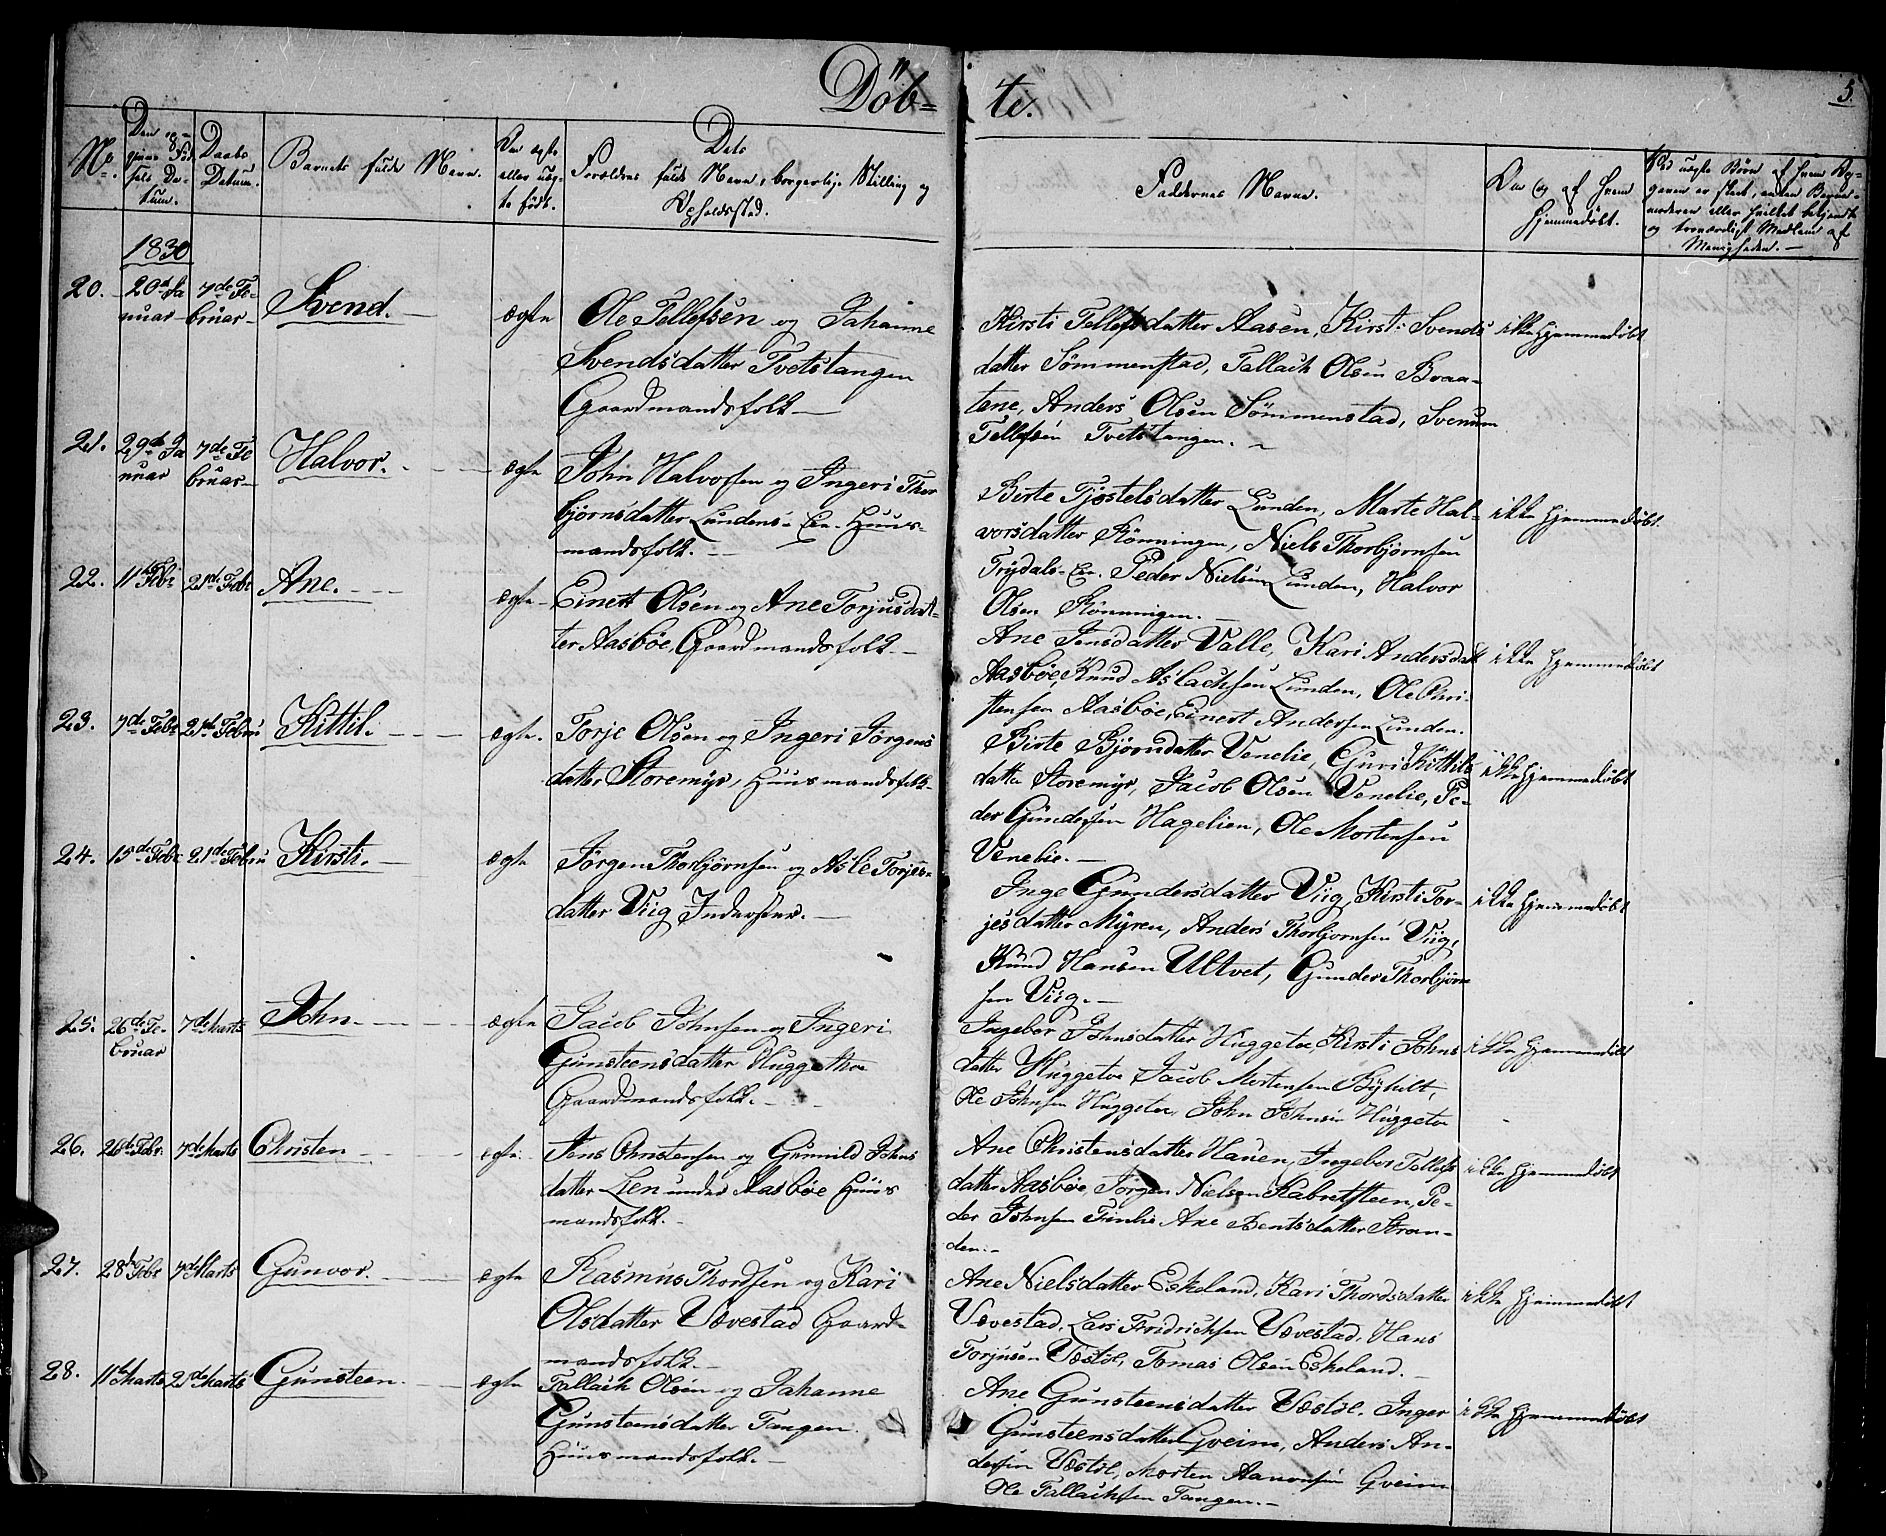 Döb= te.
5.
No.
Den og-
gives Fød-
sels Da-
tum.
Daabs
Datum.
Barnets fulde Navn.
Om ægte
eller uæg-
te født.
Dets
Forældres fulde Navn, borgerlige Stilling og
Opholdssted.
Faddernes Navne.
Om og af hvem
hjemmedøbt.
Ved uægte Børn af hvem Op-
gaven er skeet, enten Barne-
moderen eller hvilket bekjendt
og troværdigt Medlem af
Menigheden.
1830
20.
20de Ja
nuar
7de Fe-
bruar
Svend.
ægte
Ole Tellefsen og Johanne
Svendsdatter Tvetstangen
Gaardmandsfolk
Kirsti Tellefsdatter Aasen, Kirsti Svends
datter Sömmenstad, Tallach Olsen Braa-
tene, Anders Olsen Sömmenstad, Svenum
Tellefsen Tvetstangen.
ikke hjemmedøbt
21.
29de Ja
nuar
7de Fe
bruar
Halvor.
ægte
John Halvorsen og Ingeri Thor
bjørnsdatter Lundens-Eie-Huus-
mandsfolk.
Birte Tjøstelsdatter Lunden, Marte Hal-
vorsdatter Rönningen, Niels Thorbjørnsen
Trydals-Eie. Peder Nielsen Lunden, Halvor
Olsen Rönningen.
ikke hjemmedøbt.
22.
11te Febr
21de Febr
Ane.
ægte
Einert Olsen og Ane Torjusdat-
ter Aasbøe, Gaardmandsfolk.
Ane Jensdatter Valle, Kari Andersdatt
Aasbøe, Knud Aslachsen Lunden, Ole Chri-
stensen Aasbøe, Einert Andersen Lunden.
ikke hjemmedøbt
23.
7de Febr
21de Febru
Kittil.
ægte.
Torje Olsen og Ingeri Jörgens
datter Storemyr, Huusmandsfolk.
Birte Bjørnsdatter Venelie, Guri Kittils
datter Storemyr, Jacob Olsen Venelie, Pe-
der Gundersen Hagelien, Ole Mortensen
Venelie.
ikke hjemmedøbt
24.
15de Febr
21de Febru
Kirsti.
ægte
Jörgen Thorbjørnsen og Asle Torjes-
datter Viig Inderster.
Inge Gundersdatter Viig, Kirsti Tor-
jesdatter Myren, Anders Thorbjørnsen Viig,
Knud Hansen Ultvet, Gunder Thorbjørn
sen Viig.
ikke hjemmedøbt
25.
26de Fe-
bruar
7de Marts
John.
ægte
Jacob Johnsen og Ingeri
Gunsteensdatter Huggetoe
Gaardmandsfolk.
Ingebor Johnsdatter Huggetoe, Kirsti Johns
datter Huggetoe Jacob Mortensen
Ole Johnsen Huggetoe, John Johnsen Huggetoe
ikke hjemmedøbt
26.
20de Febr.
7de Marts
Christen
ægte.
Jens Christensen og Gunnild Johns
datter Lien under Aasbøe Huus
mandsfolk.
Ane Christensdatter Hauen, Ingebor Tellefs
datter Aasbøe, Jørgen Nielsen Kabretsteen, Pe-
der Johnsen Finlie Ane Bentsdatter Stran-
den.
ikke hjemmedøbt
27.
28de Febr
7de Marts
Gunvor.
ægte
Rasmus Thordsen og Kari
Olsdatter Vævestad Gaard-
mandsfolk.
Ane Nielsdatter Eskeland, Kari Thordsdatter
Vævestad, Lars Fredrichsen Vævestad, Hans
Torjusen Vestøl, Tomas Olsen Eskeland.
ikke hjemmedøbt
28.
11te Marts
21de Marts
Gunsteen.
ægte
Tallach Olsen og Johanne
Gunsteensdatter Tangen.
Huusmandsfolk.
Ane Gunsteensdatter Vestöl, Inger
Gunsteensdatter Gveim, Anders An-
dersen Vestöl, Morten Aanonsen Gveim
Ole Tallachsen Tangen.
ikke hjemmedøbt